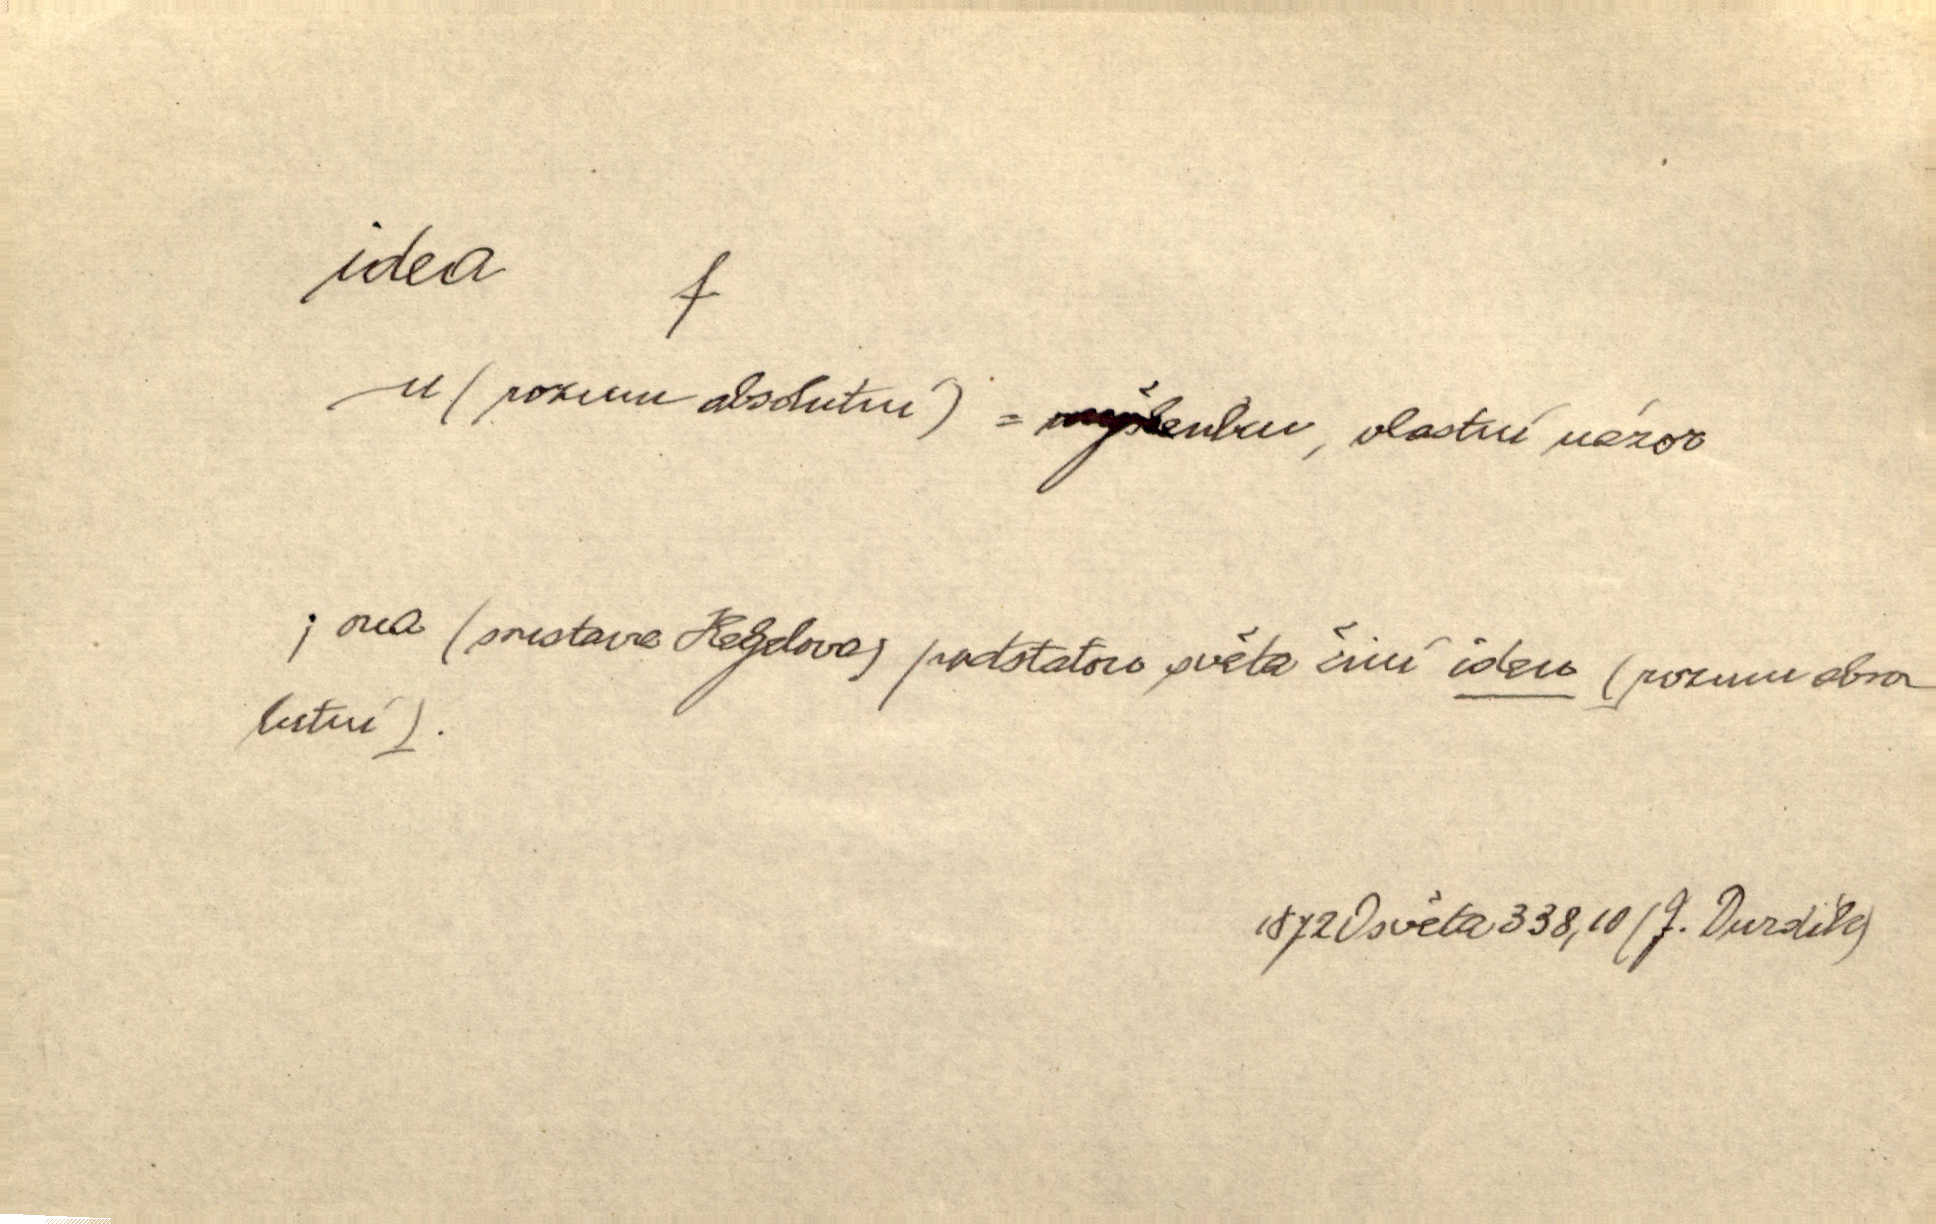 idea f
-u (rozum absolutní) = myšlenku, vlastní názor
; ona (soustava Hegelova) podstatou světa činí ideu (rozum abso-
lutní).
1872 Osvěta 338,10 (J. Durdík)